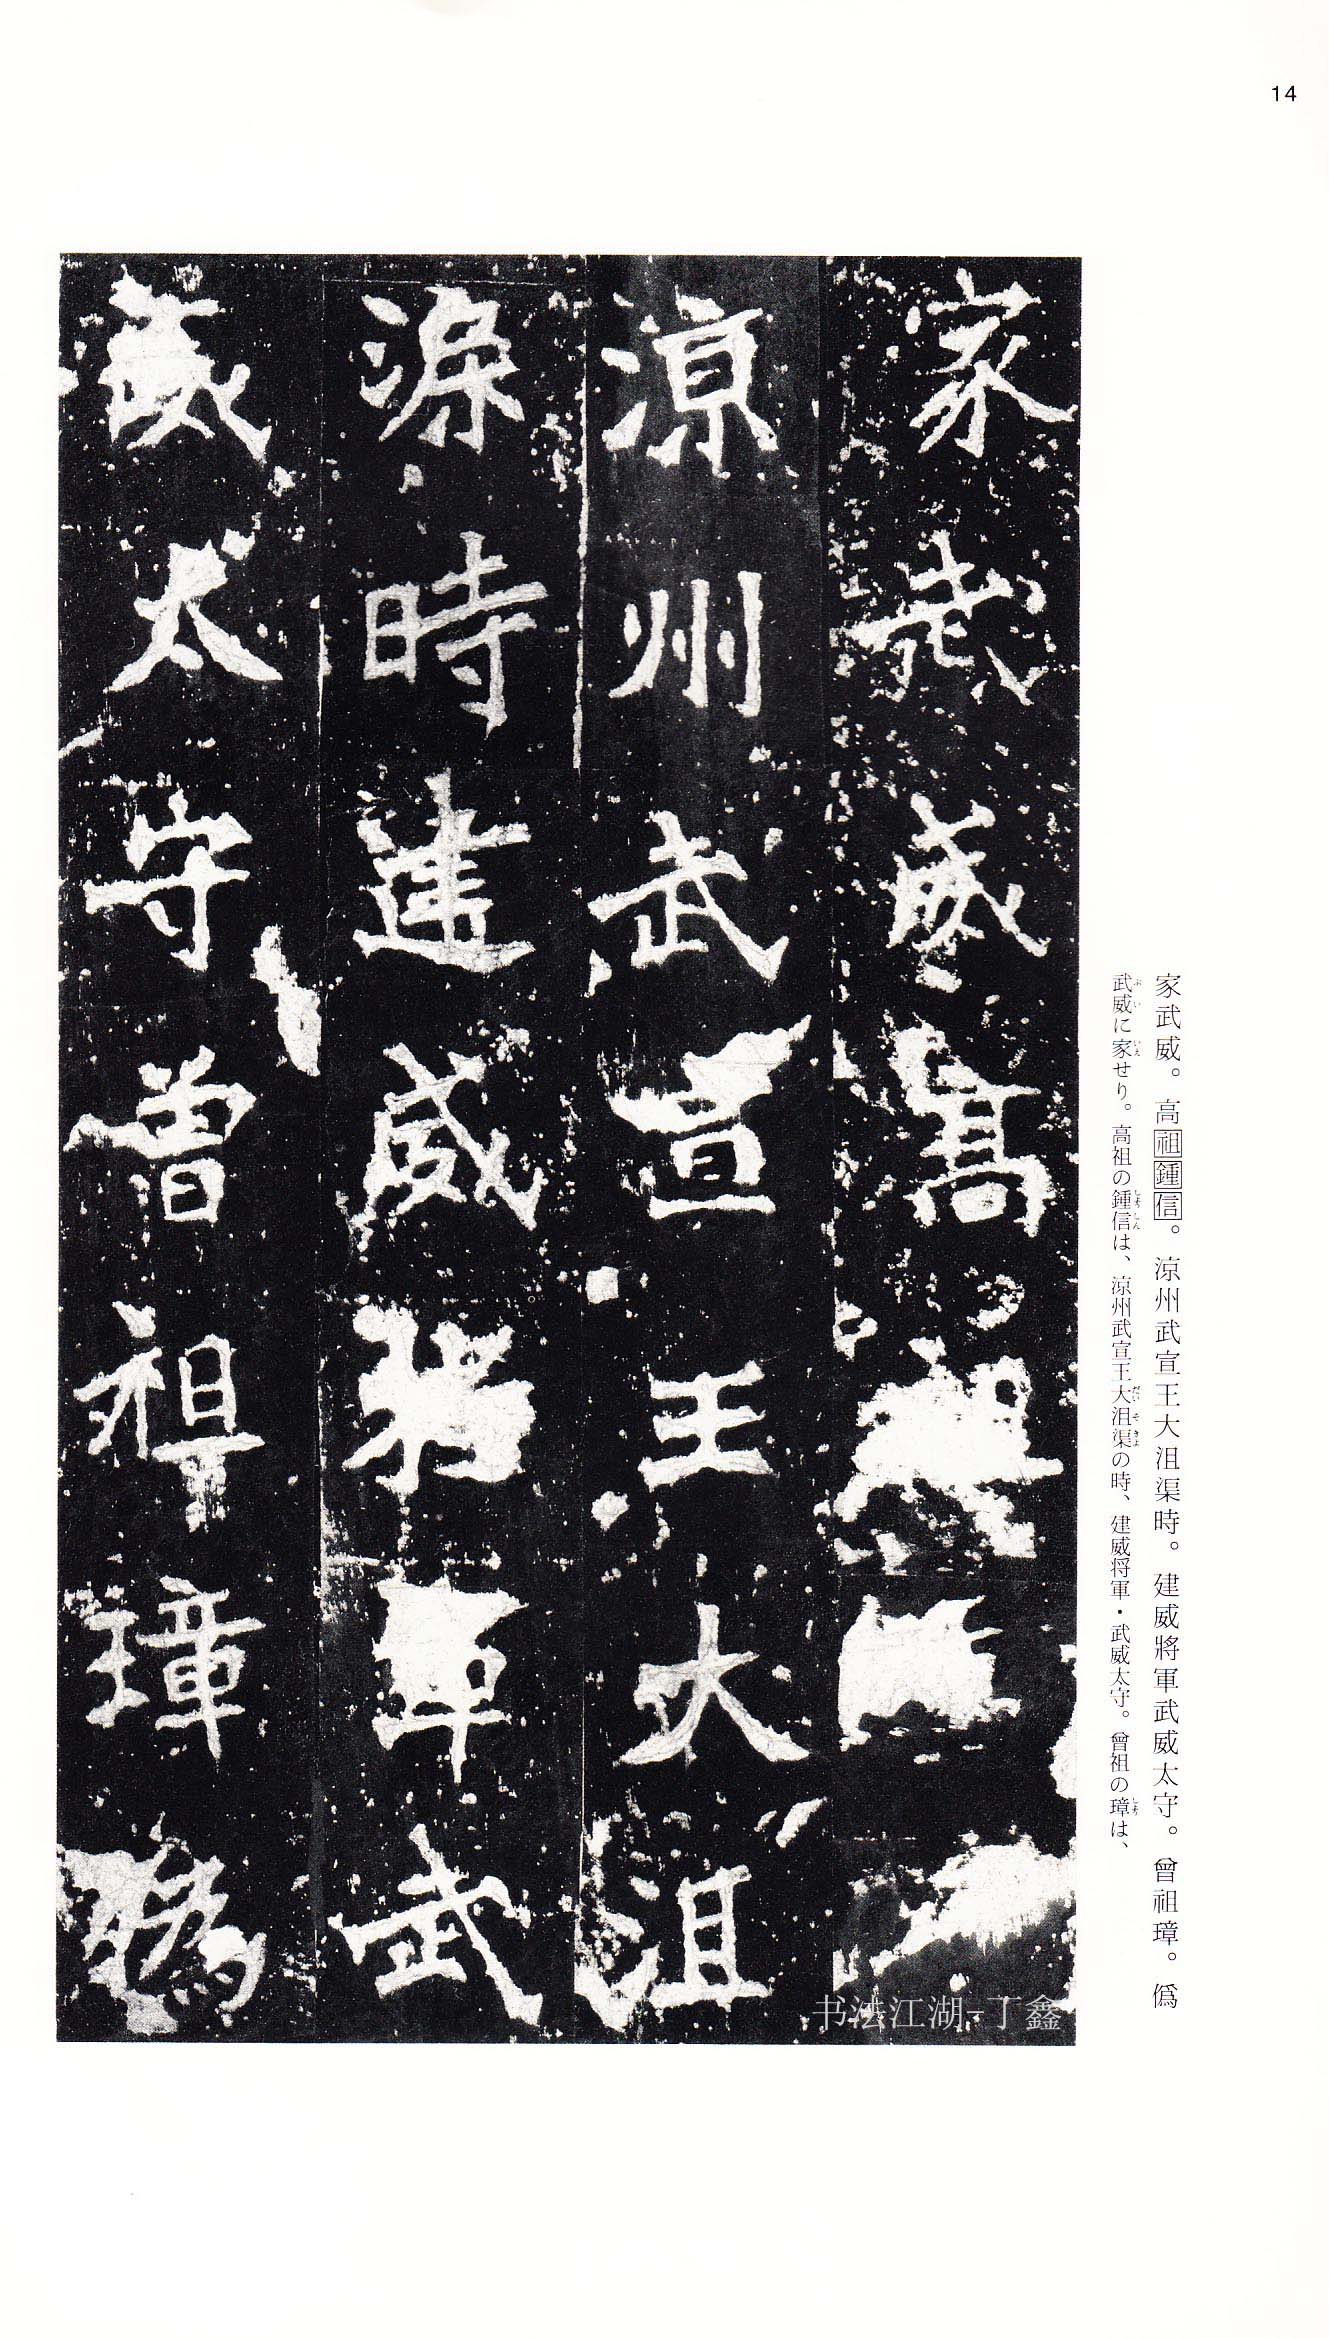 14
家武威。高祖鍾信。涼州武宣王大沮渠時。建威將軍武威太守。曾祖璋。僞
武威に家せり。高祖の鍾信は、涼州武宣王大沮渠の時、建威将軍・武威太守。曾祖の璋は、
ぶい いえ しょうしん だいそきょ しょう
家武威高
涼州武宣王大沮
渠時建威將軍武
威太守曾祖璋僞
书法江湖-丁鑫